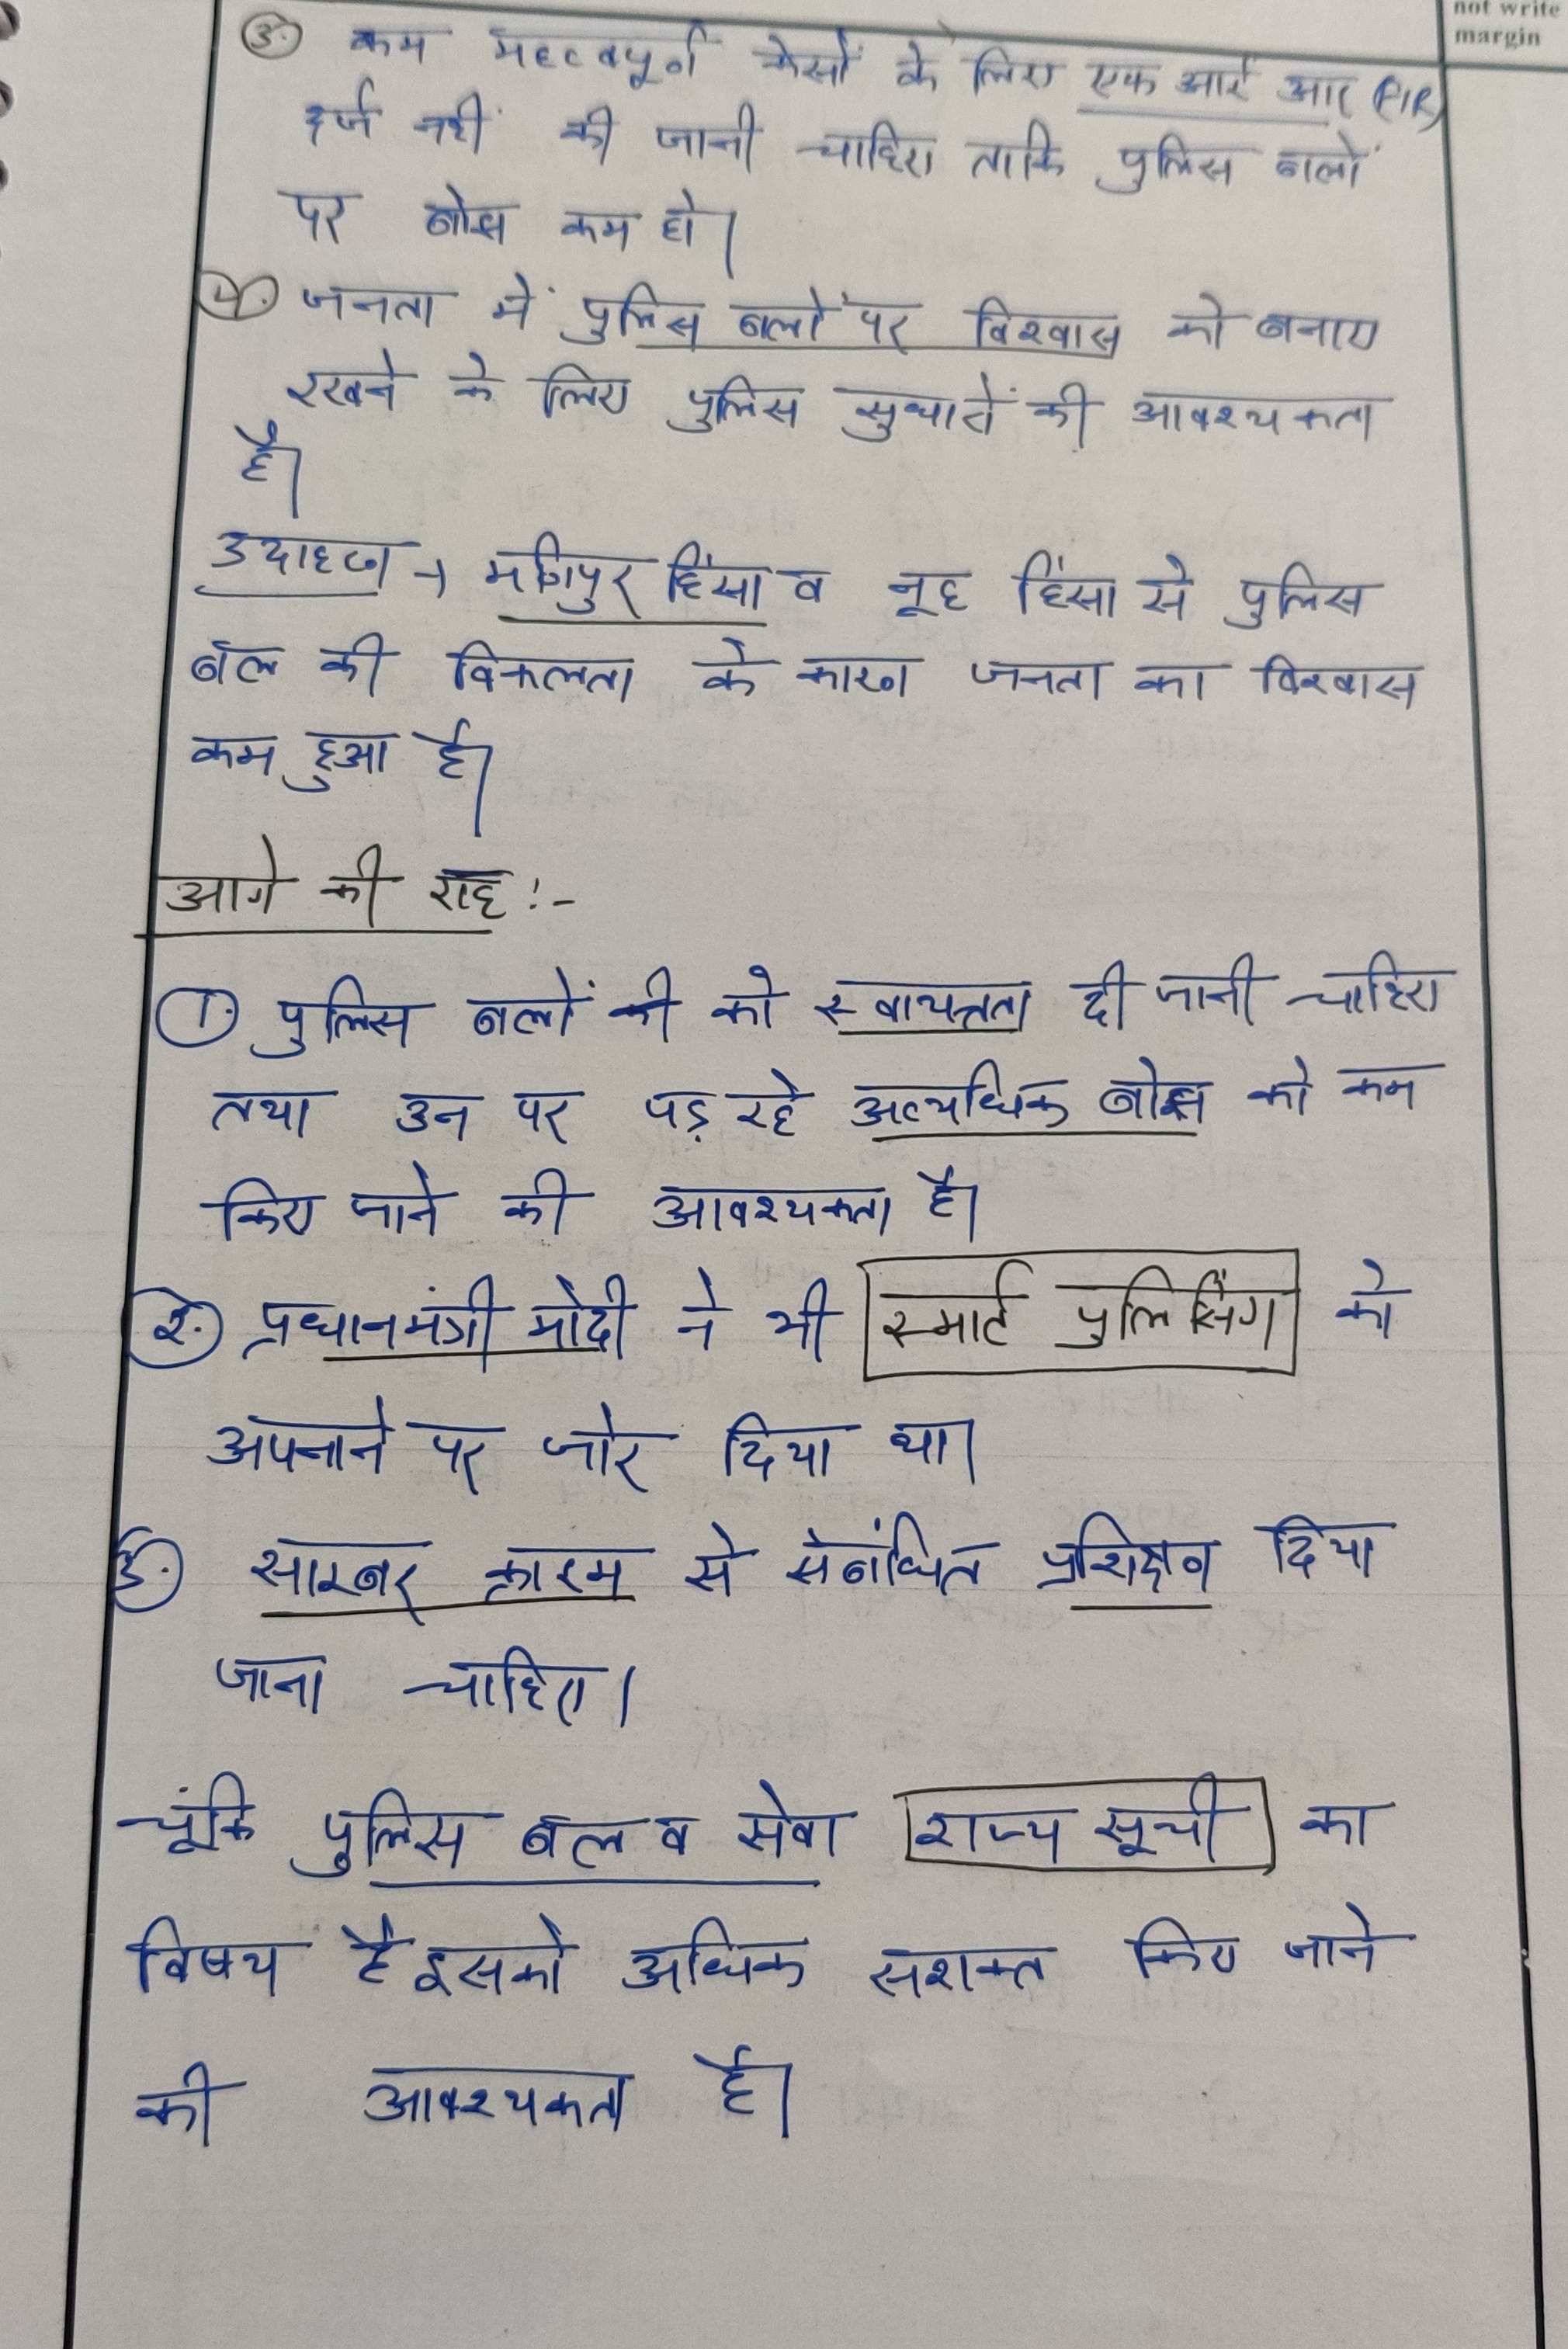 not write
margin
3. कम महत्वपूर्ण केसों के लिए एफ आई आर (FIR)
दर्ज नहीं की जानी चाहिए ताकि पुलिस बलों
पर बोझ कम हो।
4. जनता में पुलिस बलों पर विश्वास को बनाए
रखने के लिए पुलिस सुधारों की आवश्यकता
है।
उदाहरण → मणिपुर हिंसा व नूह हिंसा से पुलिस
बल की विफलता के कारण जनता का विश्वास
कम हुआ है।
आगे की राह :-
1. पुलिस बलों की को स्वायत्तता दी जानी चाहिए
तथा उन पर पड़ रहे अत्यधिक बोझ को कम
किए जाने की आवश्यकता है।
2. प्रधानमंत्री मोदी ने भी स्मार्ट पुलिसिंग को
अपनाने पर जोर दिया था।
3. साइबर क्राइम से संबंधित प्रशिक्षण दिया
जाना चाहिए।
चूंकि पुलिस बल व सेवा राज्य सूची का
विषय है इसको अधिक सशक्त किए जाने
की आवश्यकता है।